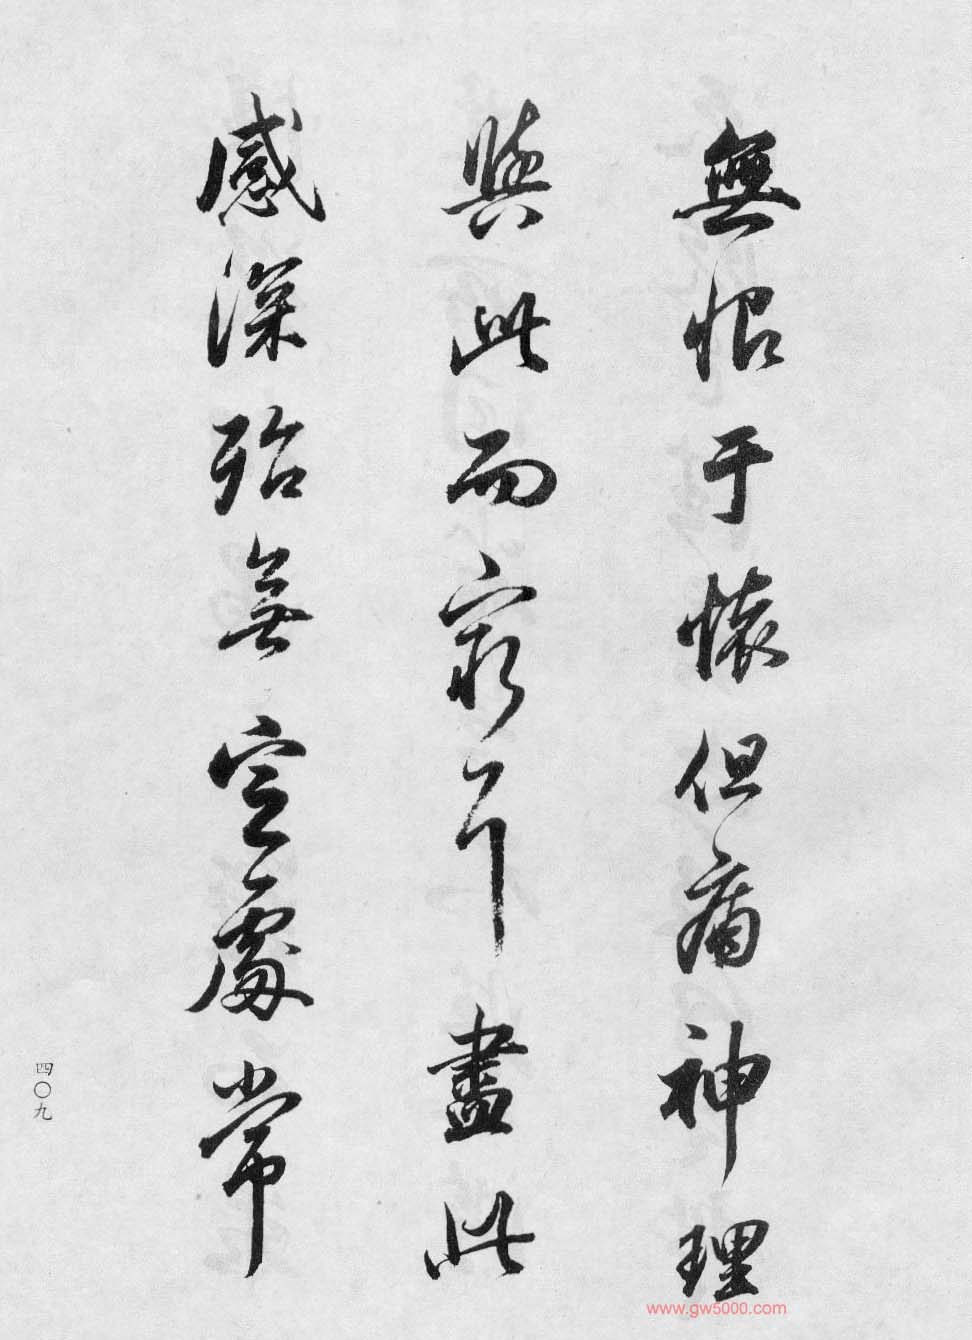 無恨于懷但痛神理
與此而窮耳盡此
感深殆無置處常
四〇九
www.gw5000.com